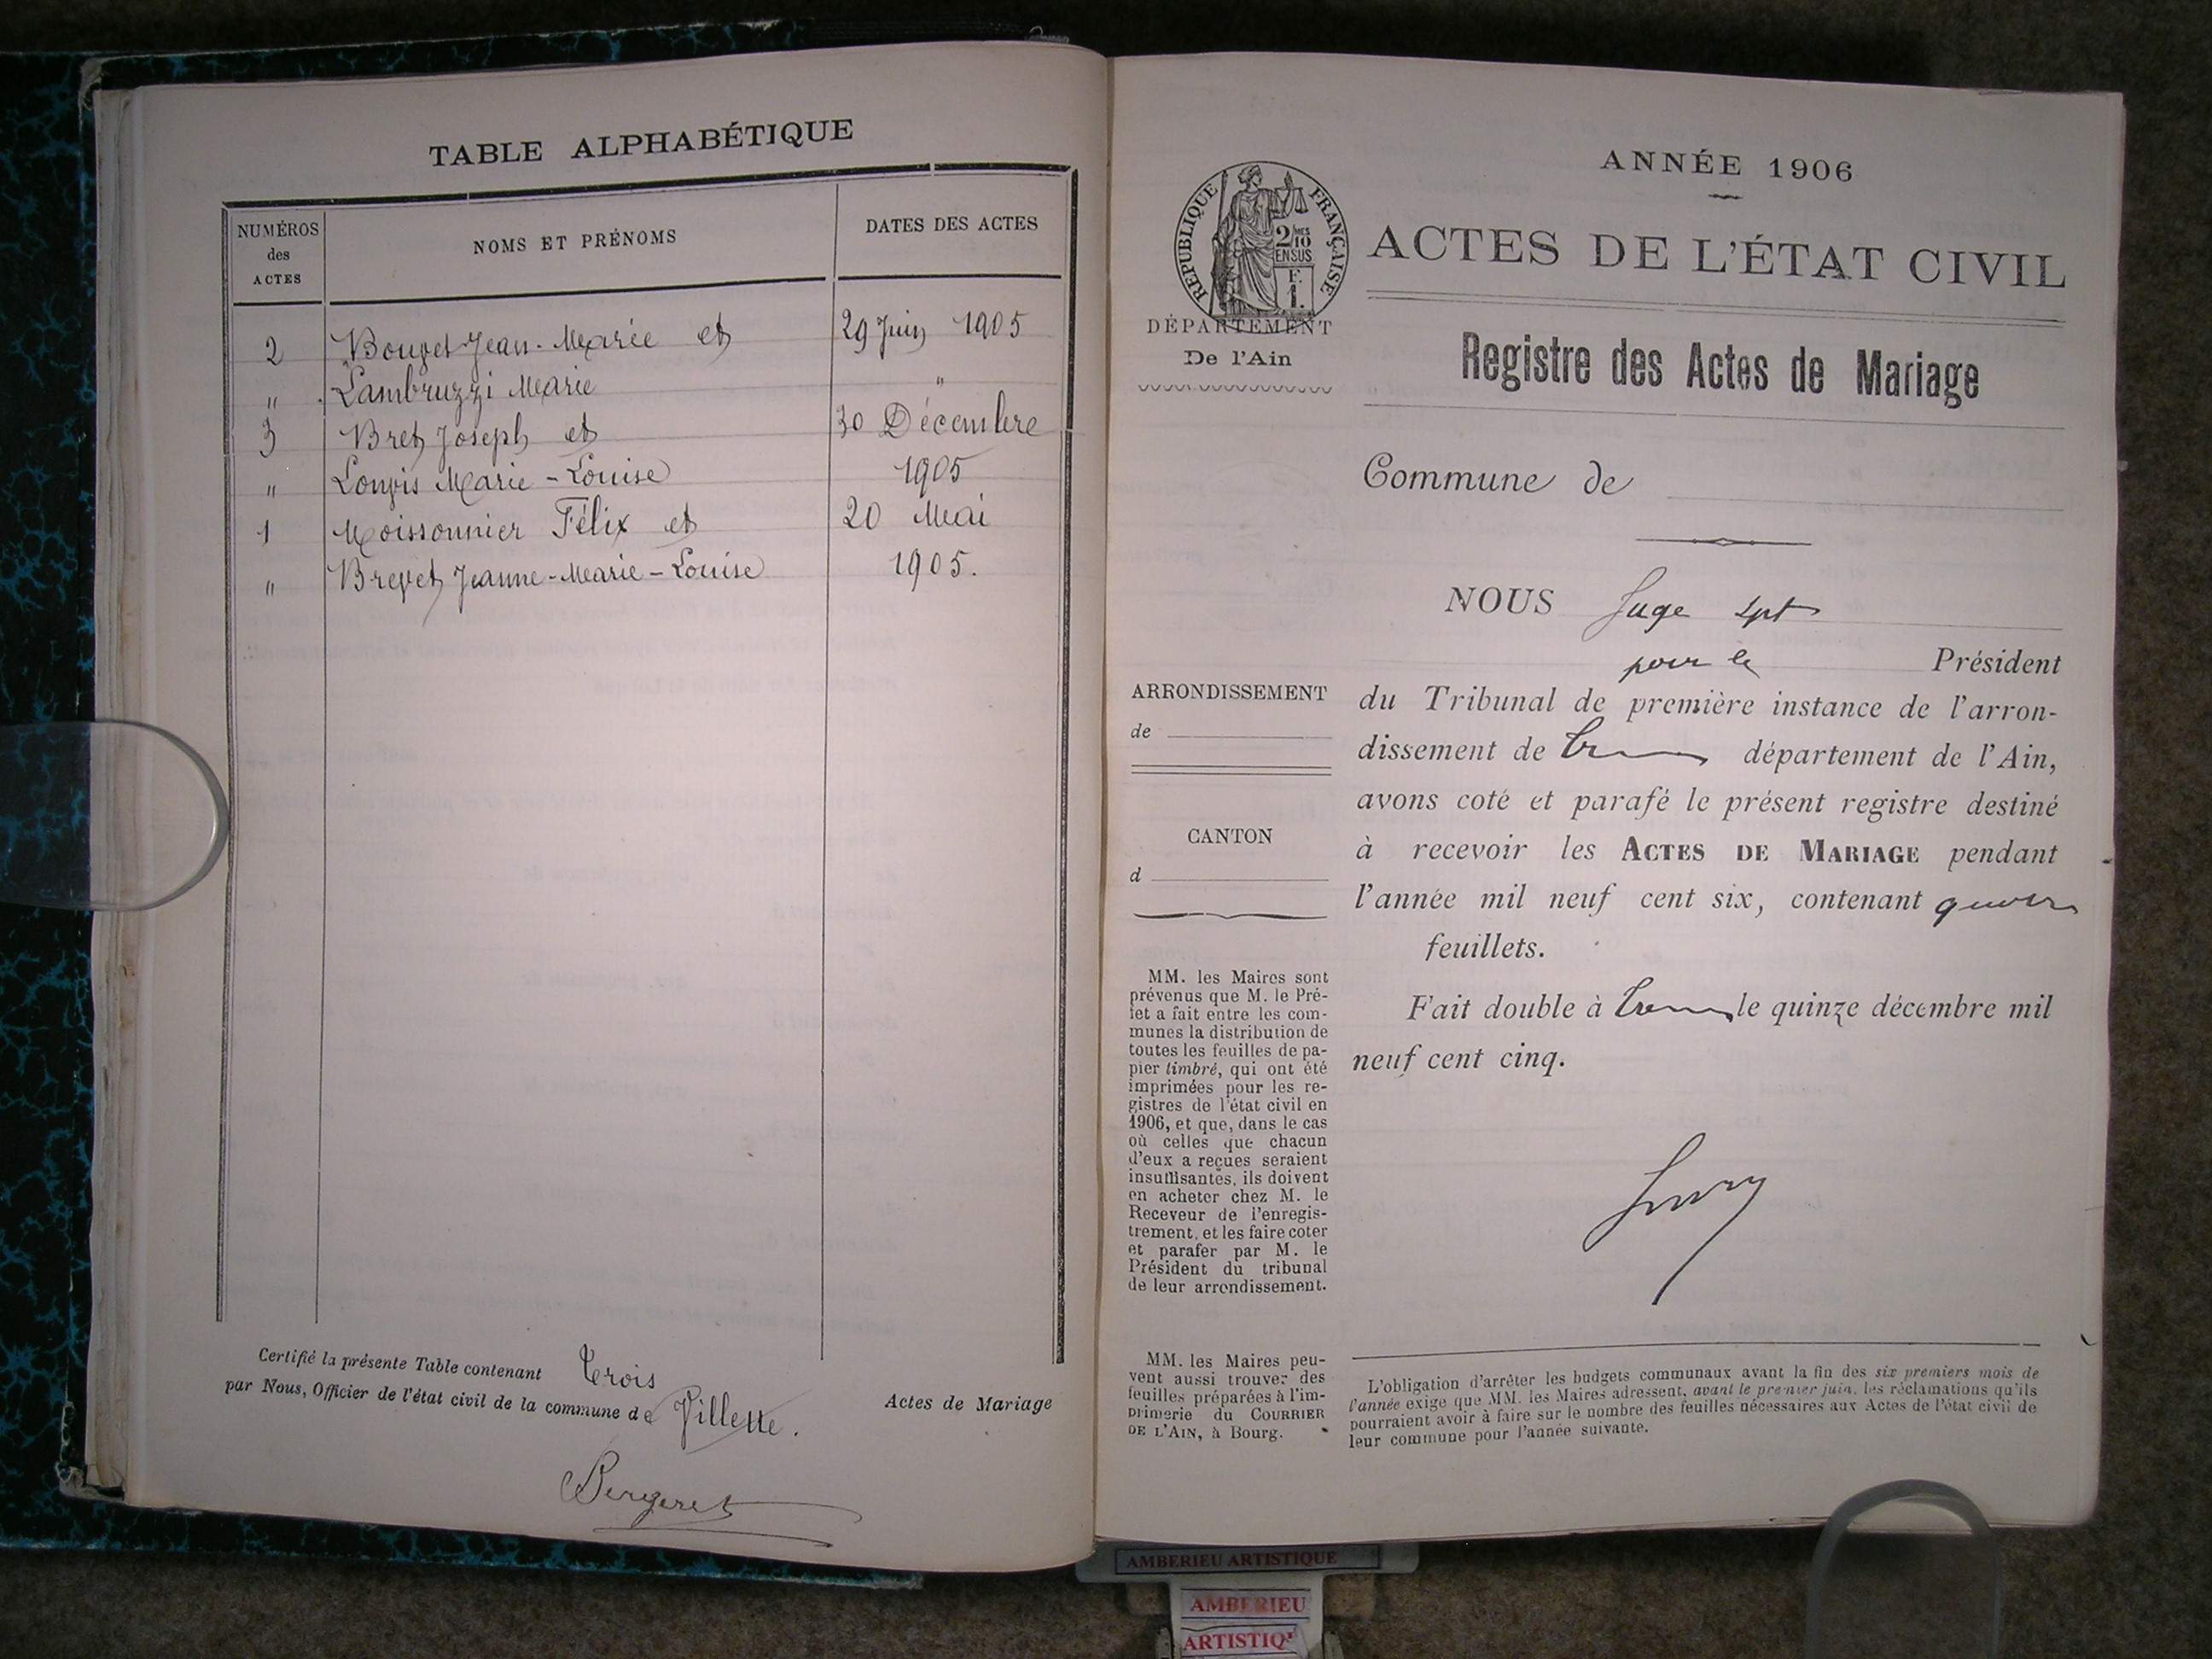 TABLE ALPHABÉTIQUE
NUMÉROS
des
ACTES
NOMS ET PRÉNOMS
DATES DES ACTES
2 Bouvet Jean-Marie et 29 Juin 1905
" Lambruzzi Marie "
3 Bret Joseph et 30 Décembre
" Marie-Louise 1905
1 Moissonnier Félix et 20 Mai
" Brevet Jeanne-Marie-Louise 1905.
Certifié la présente Table contenant trois
Actes de Mariage
par Nous, Officier de l'état civil de la commune de Villette.
Bergeret
ANNÉE 1906
RÉPUBLIQUE FRANÇAISE
2/10
EN SUS
F.
1.
ACTES DE L'ÉTAT CIVIL
DÉPARTEMENT
De l'Ain
Registre des Actes de Mariage
Commune de
NOUS Juge spt
pour le Président
ARRONDISSEMENT
de
du Tribunal de première instance de l'arron-
dissement de département de l'Ain,
avons coté et parafé le présent registre destiné
CANTON
d
à recevoir les ACTES DE MARIAGE pendant
l'année mil neuf cent six, contenant
feuillets.
Fait double à le quinze décembre mil
neuf cent cinq.
MM. les Maires sont
prévenus que M. le Pré-
fet a fait entre les com-
munes la distribution de
toutes les feuilles de pa-
pier timbré, qui ont été
imprimées pour les re-
gistres de l'état civil en
1906, et que, dans le cas
où celles que chacun
d'eux a reçues seraient
insuffisantes, ils doivent
en acheter chez M. le
Receveur de l'enregis-
trement, et les faire coter
et parafer par M. le
Président du tribunal
de leur arrondissement.
MM. les Maires peu-
vent aussi trouver des
feuilles préparées à l'im-
primerie du COURRIER
DE L'AIN, à Bourg.
L'obligation d'arrêter les budgets communaux avant la fin des six premiers mois de
l'année exige que MM. les Maires adressent, avant le premier juin, les réclamations qu'ils
pourraient avoir à faire sur le nombre des feuilles nécessaires aux Actes de l'état civil de
leur commune pour l'année suivante.
AMBERIEU ARTISTIQUE
AMBERIEU
ARTISTIQ